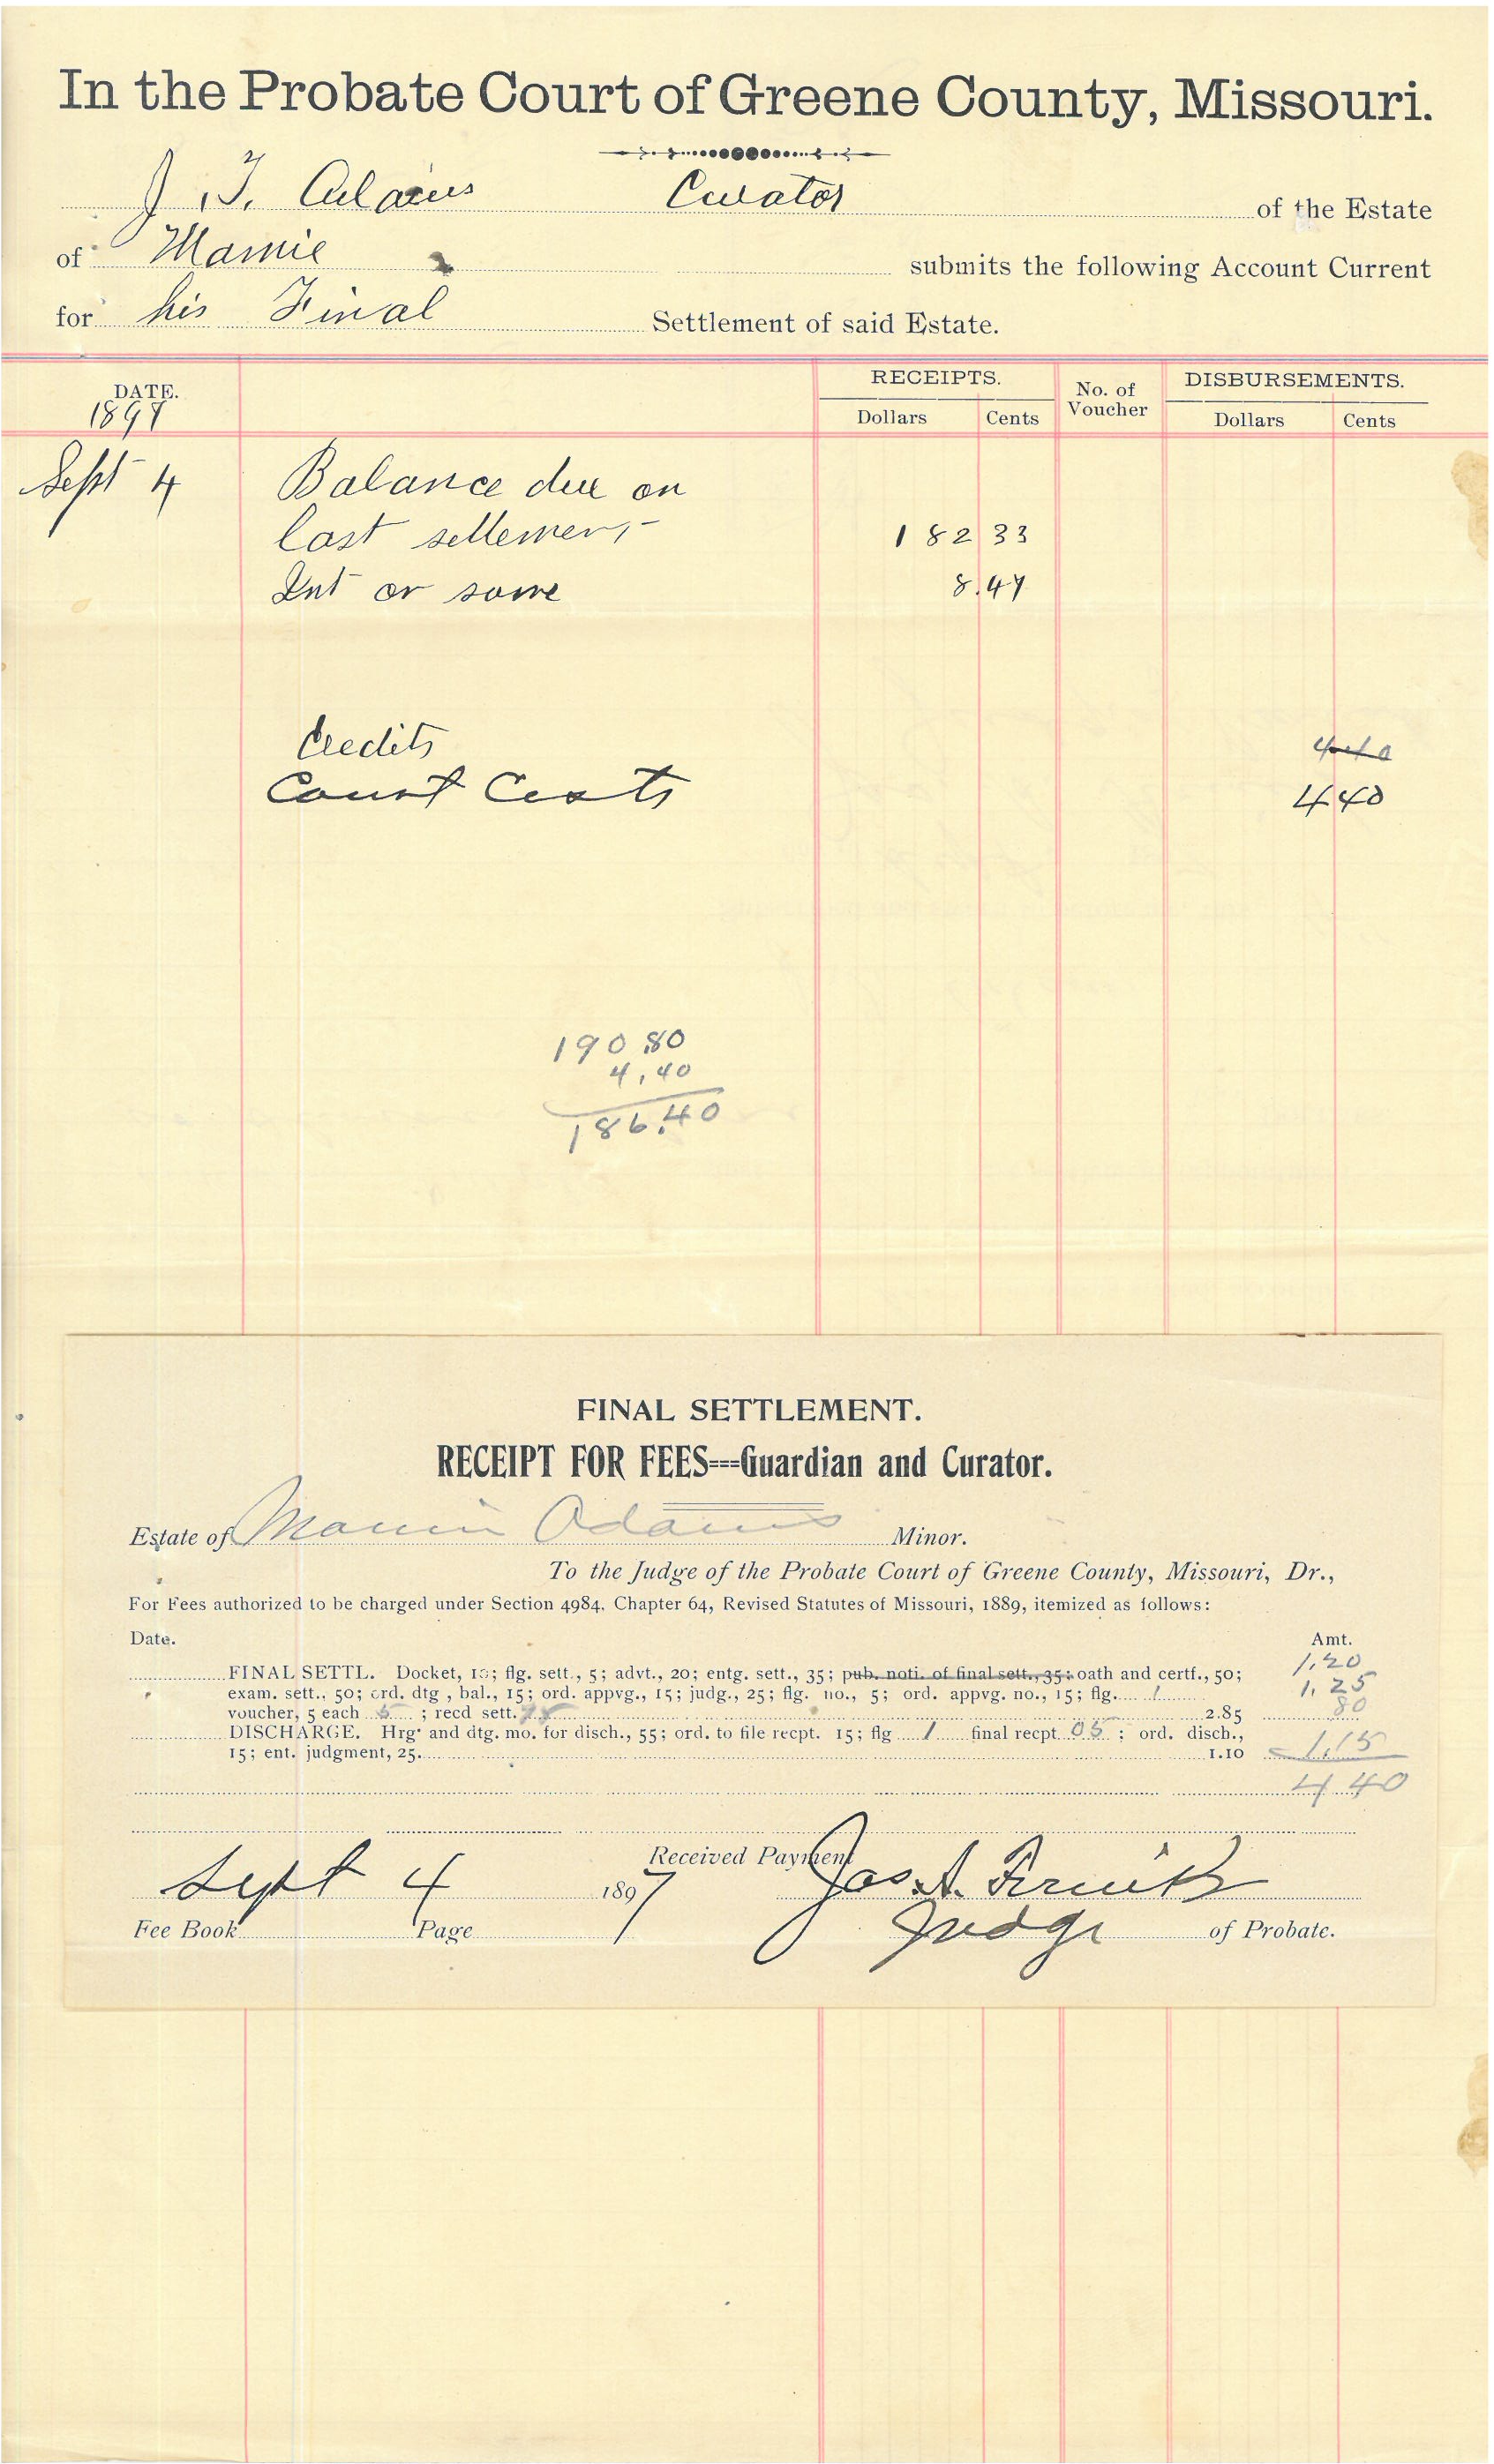 In the Probate Court of Greene County, Missouri.
J. T. Adams Curator of the Estate
of Mamie submits the following Account Current
for his Final Settlement of said Estate.
DATE. RECEIPTS. No. of Voucher DISBURSEMENTS.
1897 Dollars Cents Dollars Cents
Sept 4 Balance due on
last settlement 182 33
Int on same 8.47
Credits 4 40
Court Costs 4 40
190 80
4.40
186.40
FINAL SETTLEMENT.
RECEIPT FOR FEES---Guardian and Curator.
Estate of Mamie Adams Minor.
To the Judge of the Probate Court of Greene County, Missouri, Dr.,
For Fees authorized to be charged under Section 4984, Chapter 64, Revised Statutes of Missouri, 1889, itemized as follows:
Date. Amt.
FINAL SETTL. Docket, 10; flg. sett., 5; advt., 20; entg. sett., 35; pub. noti. of final sett., 35; oath and certf., 50; 1.20
exam. sett., 50; ord. dtg, bal., 15; ord. appvg., 15; judg., 25; flg. no., 5; ord. appvg. no., 15; flg. 1 1.25
voucher, 5 each 5 ; recd sett. 75 2.85 80
DISCHARGE. Hrg. and dtg. mo. for disch., 55; ord. to file recpt. 15; flg 1 final recpt. 05 ; ord. disch.,
15; ent. judgment, 25. 1.10 1.15
4.40
Received Payment
Sept 4 1897 Jas. A.
Fee Book Page Judge of Probate.